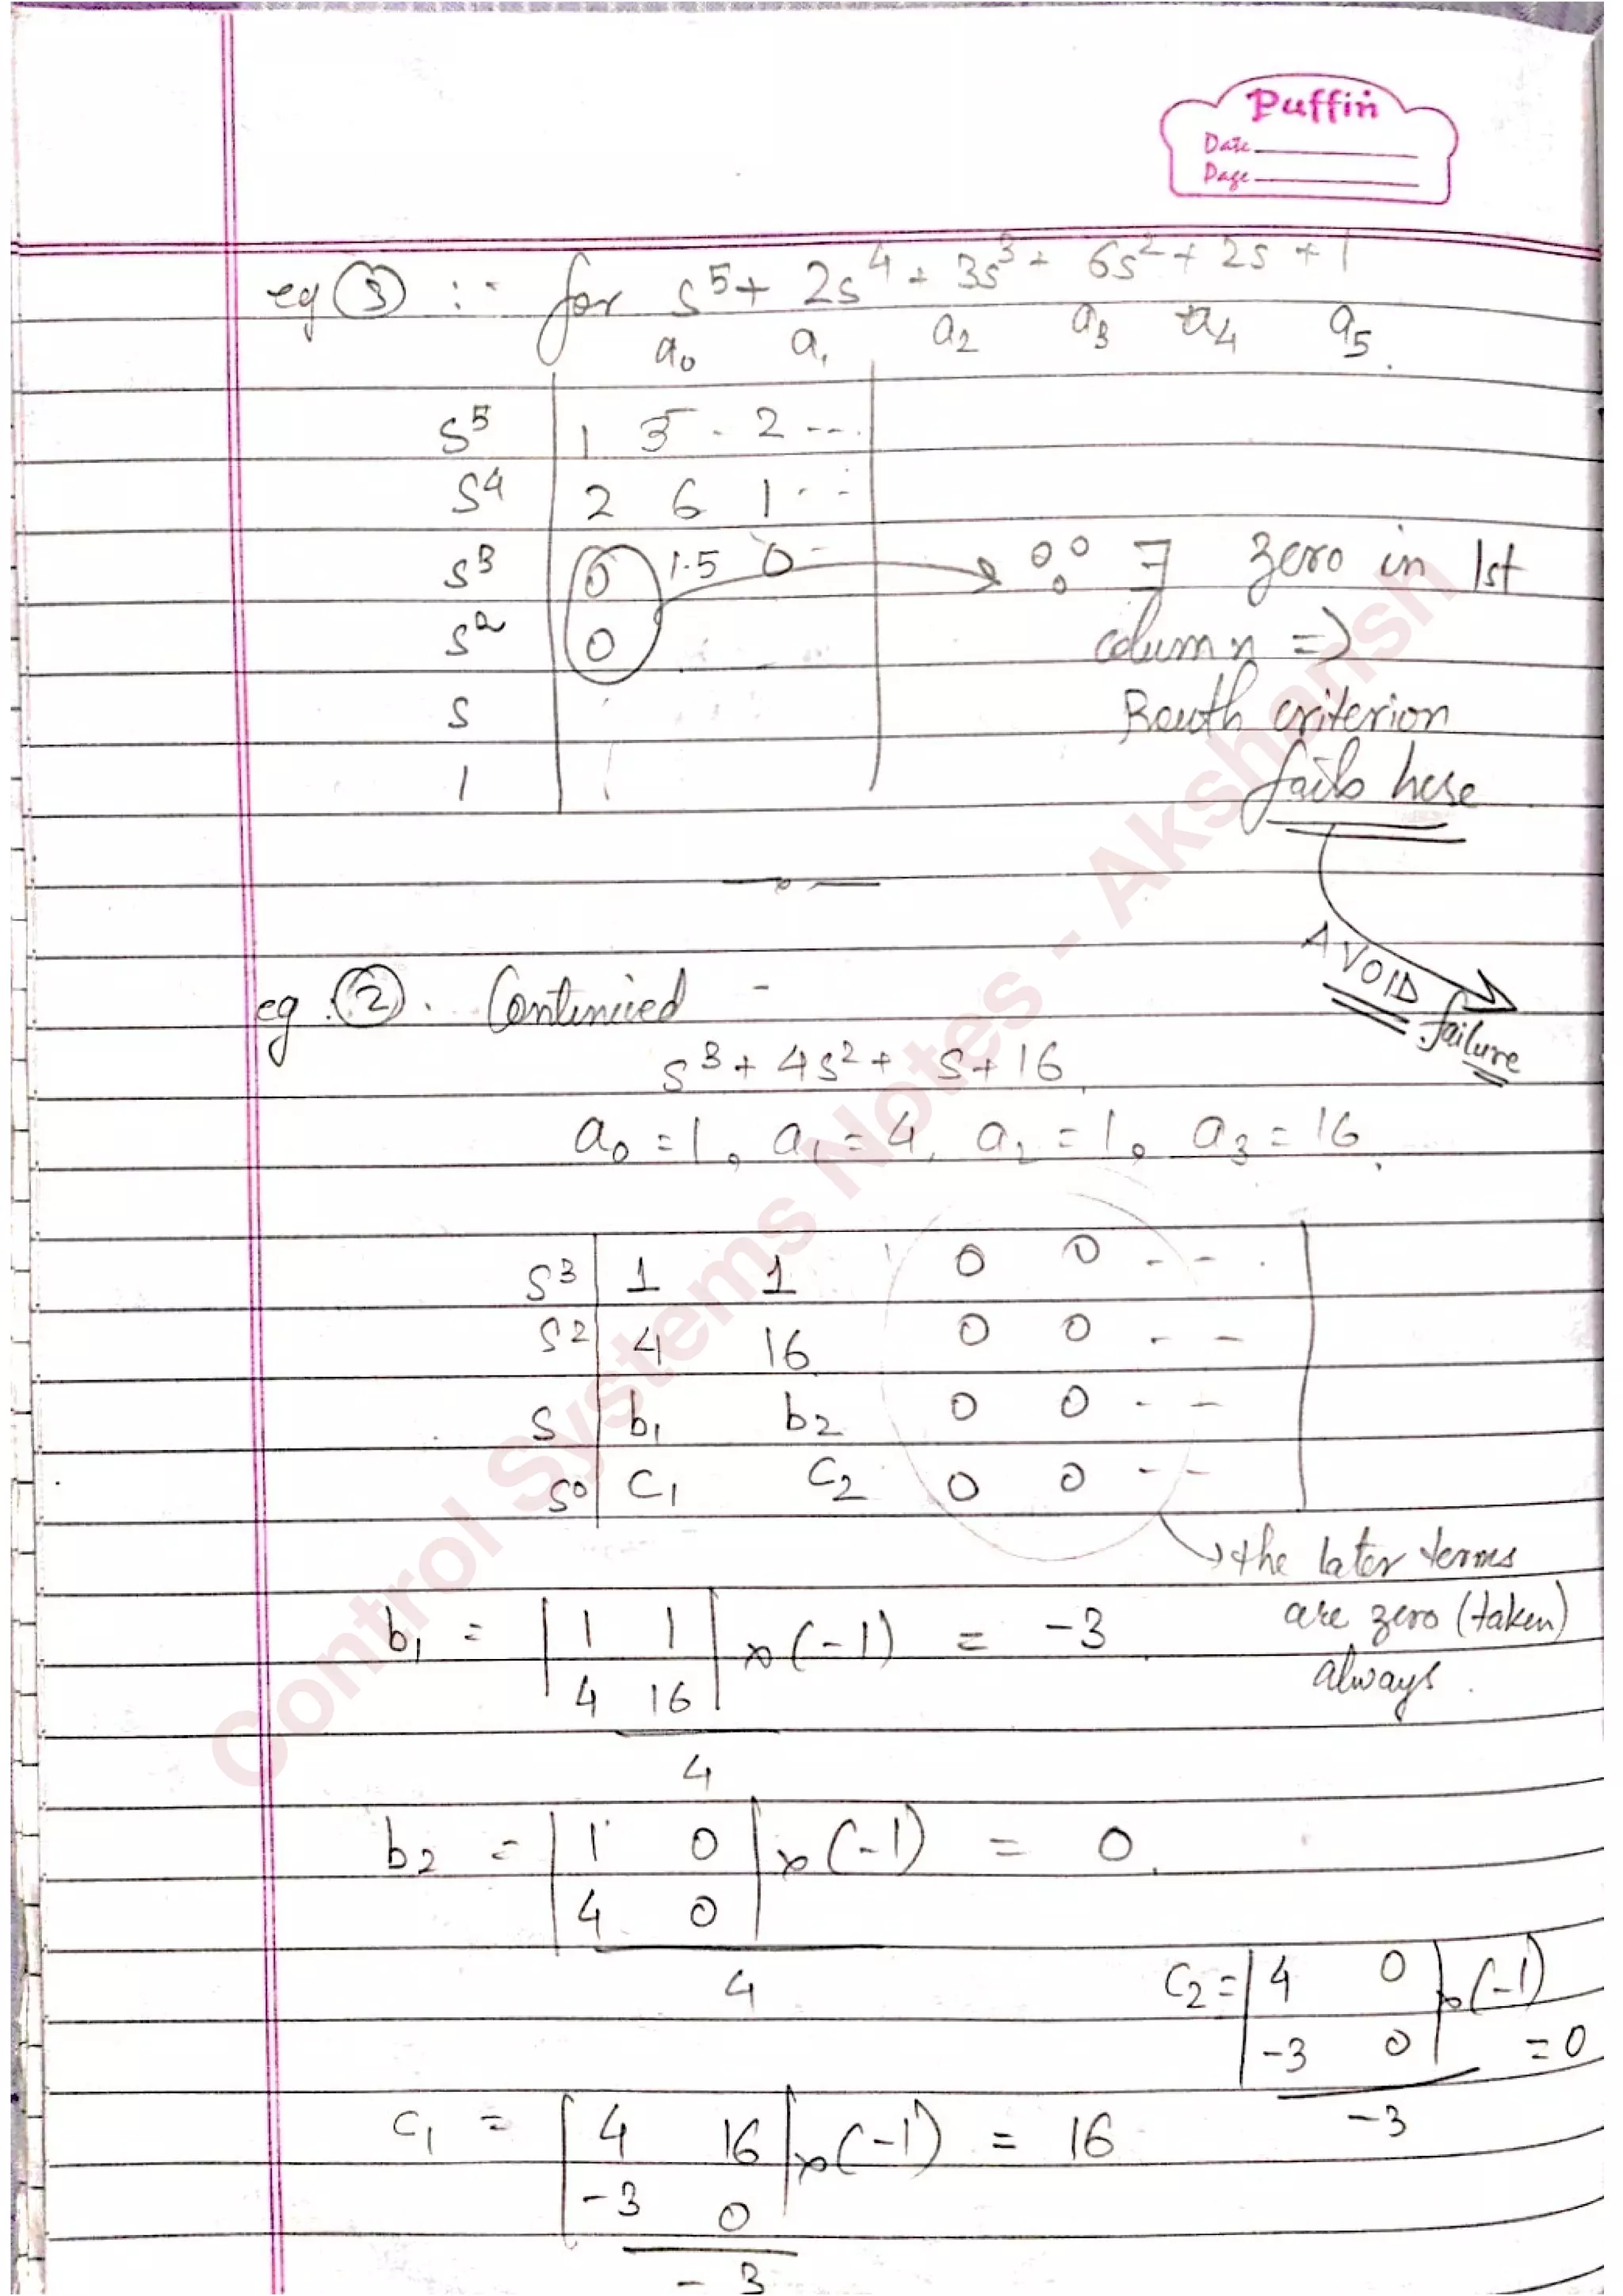 Puffin
Date
Page
eg ③ :- for s⁵ + 2s⁴ + 3s³ + 6s² + 2s + 1
a₀ a₁ a₂ a₃ a₄ a₅
s⁵ 1 3 2 ---
s⁴ 2 6 1 ---
s³ 0 1.5 0 - → ∵ ∃ zero in 1st
s² 0 column ⇒
s Routh criterion
1 fails here
AVOID failure
eg. ②. Continued -
s³ + 4s² + s + 16
a₀ = 1, a₁ = 4, a₂ = 1, a₃ = 16
s³ 1 1 0 0 - - .
s² 4 16 0 0 - -
s b₁ b₂ 0 0 - -
s⁰ c₁ c₂ 0 0 - -
→ the later terms
are zero (taken)
always.
b₁ = | 1 1 | × (-1) = -3
4 16
4
b₂ = | 1 0 | × (-1) = 0
4 0
4
c₂ = | 4 0 | × (-1)
-3 0 = 0
-3
c₁ = | 4 16 | × (-1) = 16
-3 0
-3
Control Systems Notes - Akshansh